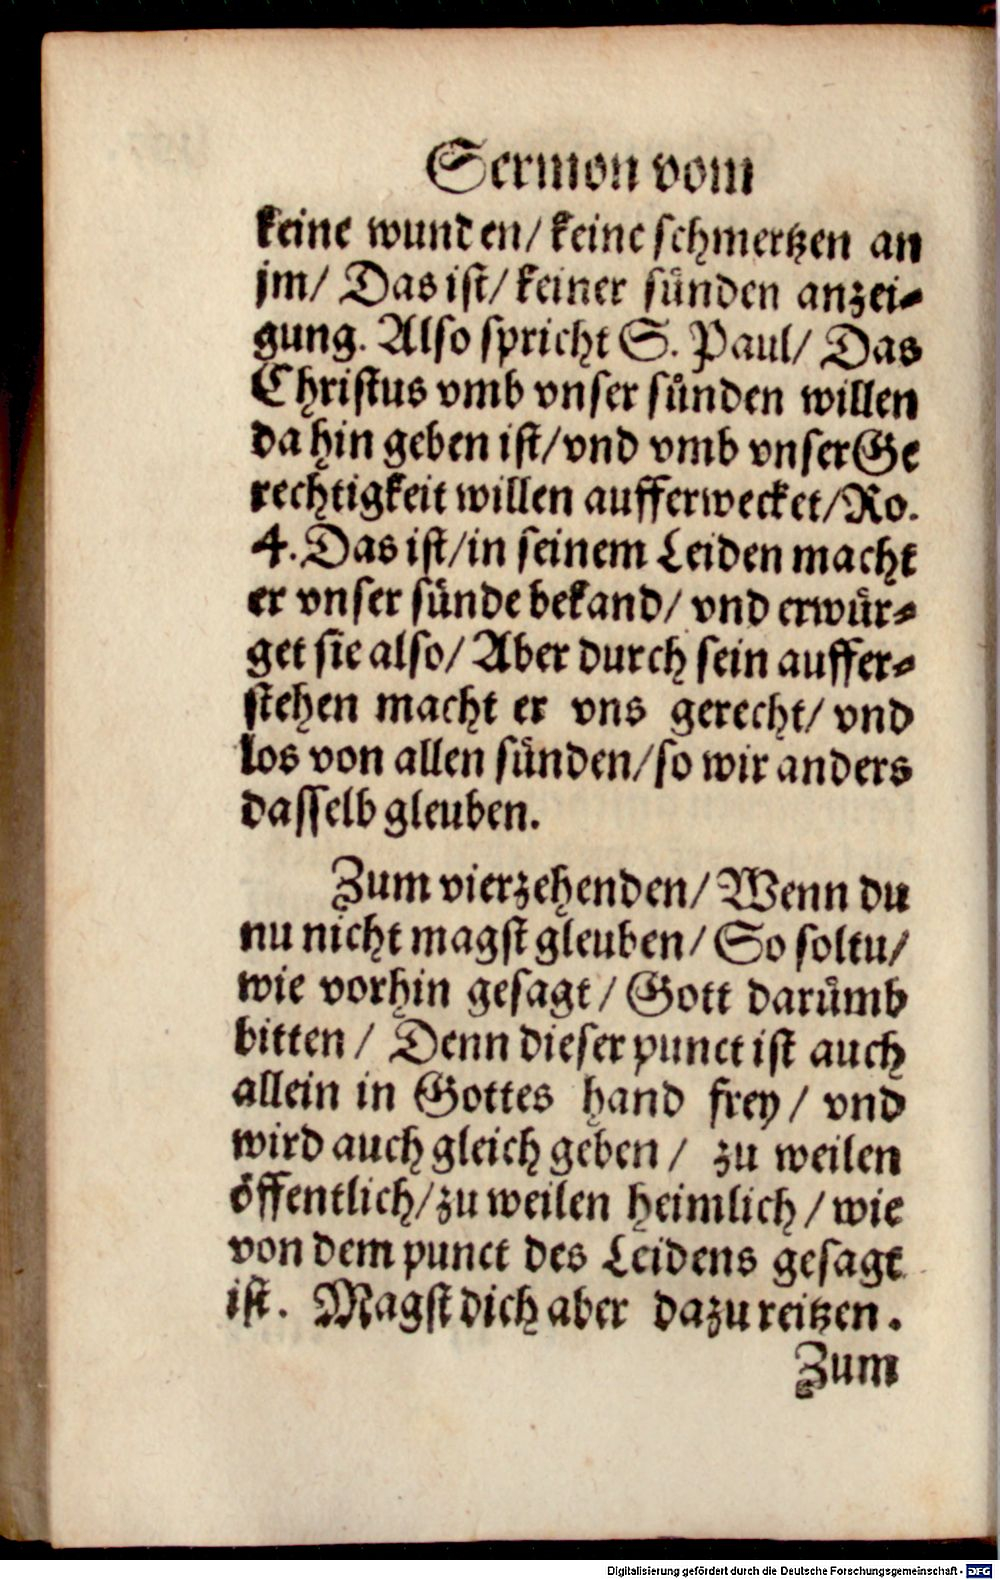 Sermon vom
keine wunden/ keine schmertzen an
jm/ Das ist/ keiner sünden anzei⸗
gung. Also spricht S. Paul/ Das
Christus vmb vnser sünden willen
da hin geben ist/ vnd vmb vnser Ge
rechtigkeit willen aufferwecket/ Ro.
4. Das ist/ in seinem Leiden macht
er vnser sünde bekand/ vnd erwür⸗
get sie also/ Aber durch sein auffer⸗
stehen macht er vns gerecht/ vnd
los von allen sünden/ so wir anders
dasselb gleuben.
Zum vierzehenden/ Wenn du
nu nicht magst gleuben/ So soltu/
wie vorhin gesagt/ Gott darümb
bitten/ Denn dieser punct ist auch
allein in Gottes hand frey/ vnd
wird auch gleich geben/ zu weilen
öffentlich/ zu weilen heimlich/ wie
von dem punct des Leidens gesagt
ist. Magst dich aber dazu reitzen.
Zum
Digitalisierung gefördert durch die Deutsche Forschungsgemeinschaft - DFG